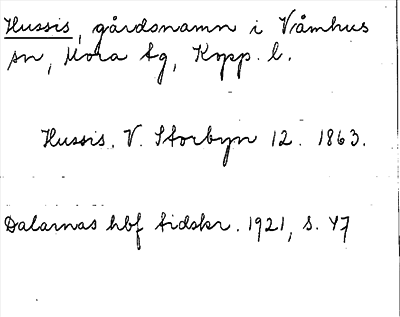 Hussis, gårdsnamn i Våmhus
sn, Mora tg, Kopp. l.
Hussis. V. Storbyn 12. 1863.
Dalarnas hbf tidskr. 1921, s. 47